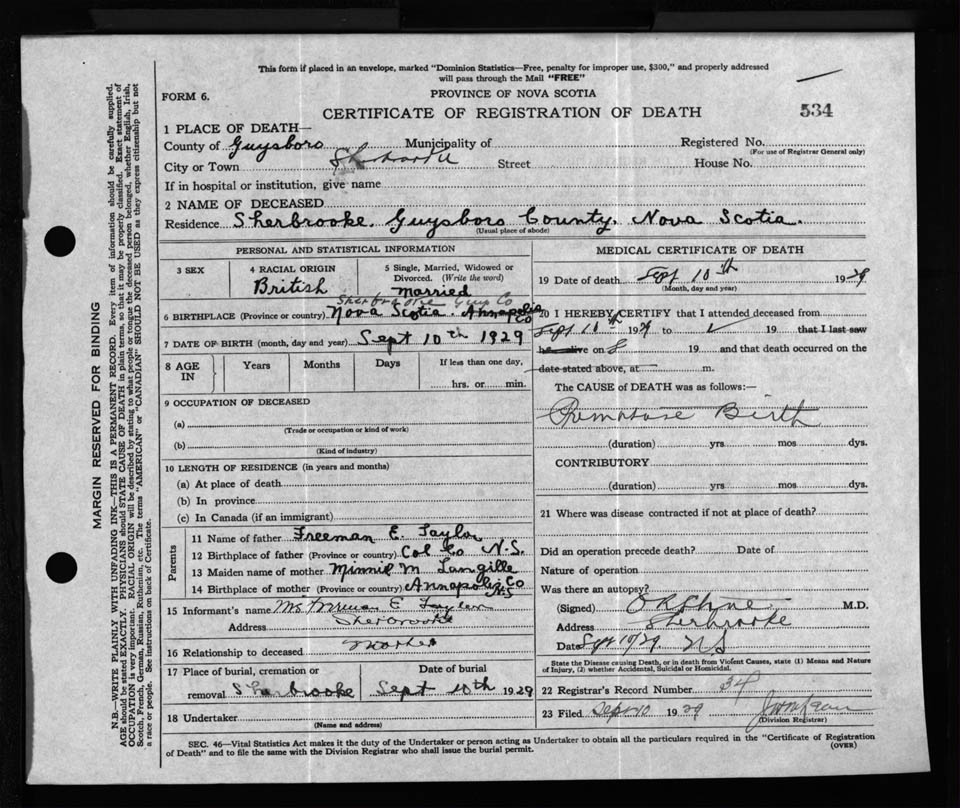 This form if placed in an envelope, marked "Dominion Statistics—Free, penalty for improper use, $300," and properly addressed
will pass through the Mail "FREE"
FORM 6.
PROVINCE OF NOVA SCOTIA
CERTIFICATE OF REGISTRATION OF DEATH
534
1 PLACE OF DEATH—
County of Guysboro Municipality of Registered No.
(For use of Registrar General only)
City or Town Street House No.
If in hospital or institution, give name
2 NAME OF DECEASED
Residence Sherbrooke, Guysboro County, Nova Scotia.
(Usual place of abode)
PERSONAL AND STATISTICAL INFORMATION
3 SEX
4 RACIAL ORIGIN
British
5 Single, Married, Widowed or
Divorced. (Write the word)
Married
Sherbrooke Guys Co
6 BIRTHPLACE (Province or country) Nova Scotia. Annapolis
Co
7 DATE OF BIRTH (month, day and year) Sept 10th 1929
8 AGE
IN
Years
Months
Days
If less than one day,
hrs. or min.
9 OCCUPATION OF DECEASED
(a)
(Trade or occupation or kind of work)
(b)
(Kind of industry)
10 LENGTH OF RESIDENCE (in years and months)
(a) At place of death
(b) In province
(c) In Canada (if an immigrant)
Parents
11 Name of father Freeman E. Taylor
12 Birthplace of father (Province or country) Col Co N.S.
13 Maiden name of mother Minnie M Langille
14 Birthplace of mother (Province or country) Annapolis Co
N.S
15 Informant's name Mrs E Taylor
Address Sherbrooke
16 Relationship to deceased Mother
17 Place of burial, cremation or
Date of burial
removal Sherbrooke Sept 10th 1929
18 Undertaker
(Name and address)
MEDICAL CERTIFICATE OF DEATH
19 Date of death Sept 10th 1929
(Month, day and year)
20 I HEREBY CERTIFY that I attended deceased from
Sept 10th 1929 to 19 that I last saw
h alive on 19 and that death occurred on the
date stated above, at m.
The CAUSE of DEATH was as follows:—
Birth
(duration) yrs mos dys.
CONTRIBUTORY
(duration) yrs mos dys.
21 Where was disease contracted if not at place of death?
Did an operation precede death? Date of
Nature of operation
Was there an autopsy?
(Signed) M.D.
Address Sherbrooke
Date Sept 10/29 NS
State the Disease causing Death, or in death from Violent Causes, state (1) Means and Nature
of Injury, (2) whether Accidental, Suicidal or Homicidal.
22 Registrar's Record Number 34
23 Filed Sept 10 1929
(Division Registrar)
SEC. 46—Vital Statistics Act makes it the duty of the Undertaker or person acting as Undertaker to obtain all the particulars required in the "Certificate of Registration
of Death" and to file the same with the Division Registrar who shall issue the burial permit.
(OVER)
MARGIN RESERVED FOR BINDING
N.B.—WRITE PLAINLY WITH UNFADING INK—THIS IS A PERMANENT RECORD. Every item of information should be carefully supplied.
AGE should be stated EXACTLY. PHYSICIANS should STATE CAUSE OF DEATH in plain terms, so that it may be properly classified. Exact statement of
OCCUPATION is very important. RACIAL ORIGIN will be described by stating to what people or tongue the deceased person belonged, whether English, Irish,
Scotch, French, German, Russian, Ruthenian, etc. The terms "AMERICAN" or "CANADIAN" SHOULD NOT BE USED as they express citizenship but not
a race or people. See instructions on back of Certificate.